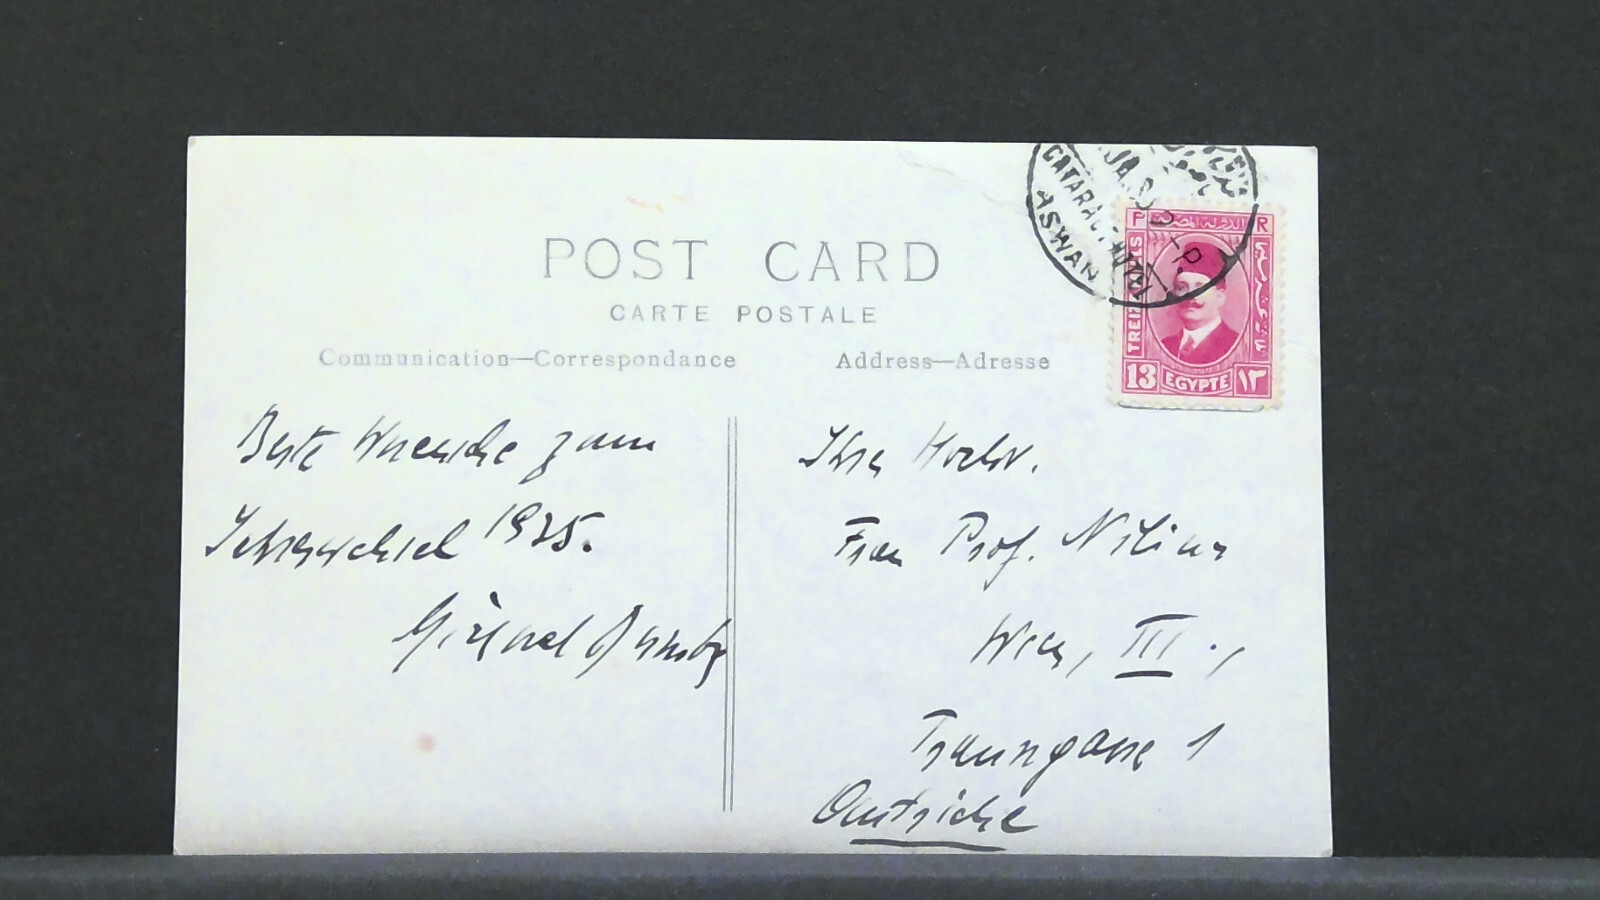 POST CARD
CARTE POSTALE
Communication—Correspondance
Address—Adresse
CATARACT HOTEL
ASWAN
P R
13 EGYPTE ١٣
Beste Wuensche zum
Jahreswechsel 1935.
Ihrer Hochw.
Frau Prof.
Wien, III.,
Traungasse 1
Oustriche